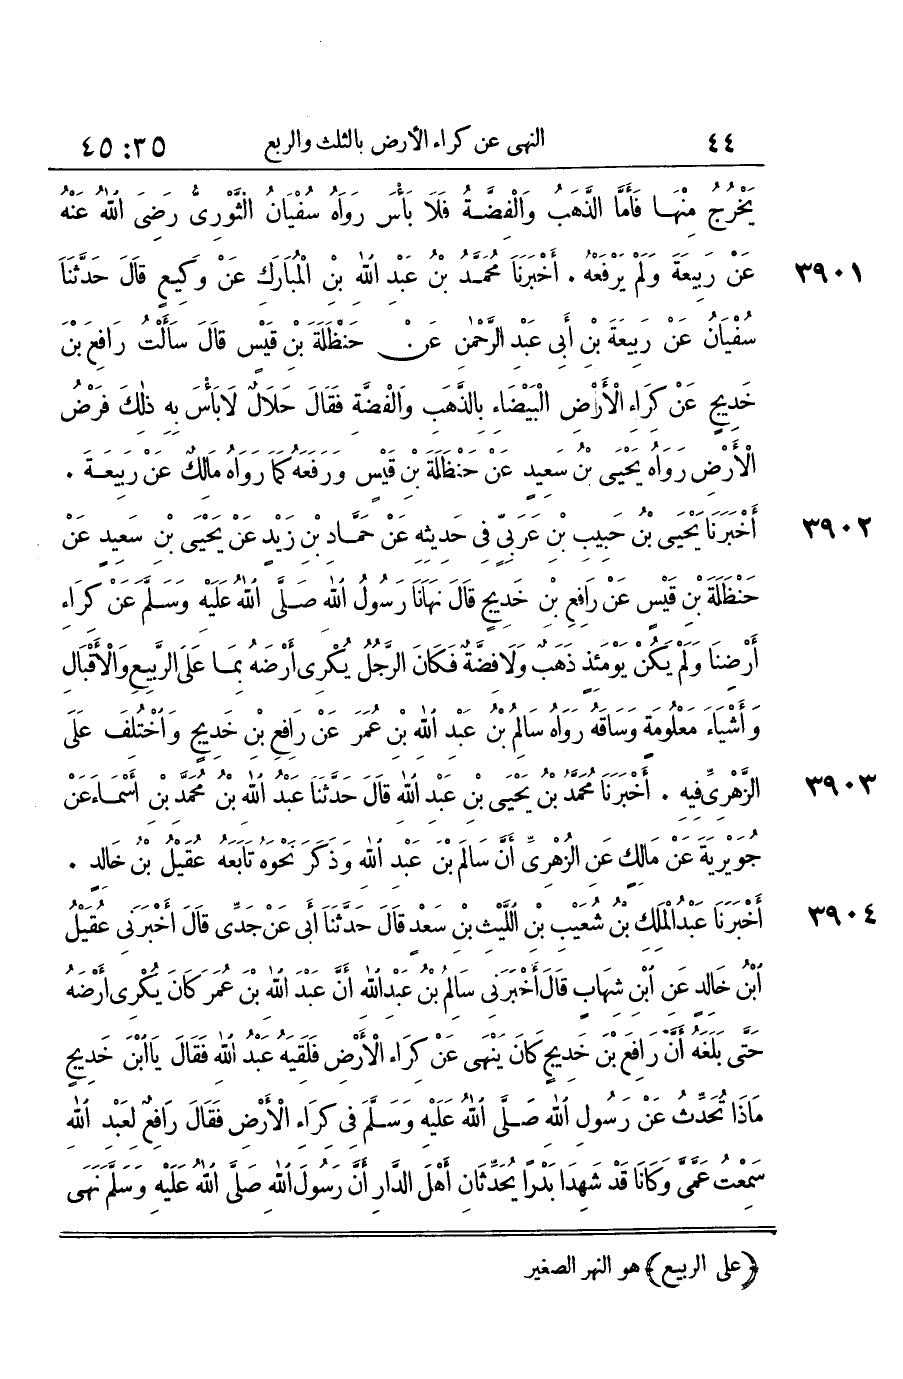 ٤٤ النهى عن كراء الأرض بالثلث والربع ٣٥: ٤٥
يَخْرُجُ مِنْهَا فَأَمَّا الذَّهَبُ وَالْفِضَّةُ فَلَا بَأْسَ رَوَاهُ سُفْيَانُ الثَّوْرِىُّ رَضِىَ اللهُ عَنْهُ
عَنْ رَبِيعَةَ وَلَمْ يَرْفَعْهُ . أَخْبَرَنَا مُحَمَّدُ بْنُ عَبْدِ اللهِ بْنِ الْمُبَارَكِ عَنْ وَكِيعٍ قَالَ حَدَّثَنَا ٣٩٠١
سُفْيَانُ عَنْ رَبِيعَةَ بْنِ أَبِى عَبْدِ الرَّحْمٰنِ عَنْ حَنْظَلَةَ بْنِ قَيْسٍ قَالَ سَأَلْتُ رَافِعَ بْنَ
خَدِيجٍ عَنْ كِرَاءِ الْأَرْضِ الْبَيْضَاءِ بِالذَّهَبِ وَالْفِضَّةِ فَقَالَ حَلَالٌ لَا بَأْسَ بِهِ ذٰلِكَ فَرْضُ
الْأَرْضِ رَوَاهُ يَحْيَى بْنُ سَعِيدٍ عَنْ حَنْظَلَةَ بْنِ قَيْسٍ وَرَفَعَهُ كَمَا رَوَاهُ مَالِكٌ عَنْ رَبِيعَةَ .
أَخْبَرَنَا يَحْيَى بْنُ حَبِيبِ بْنِ عَرَبِىٍّ فِى حَدِيثِهِ عَنْ حَمَّادِ بْنِ زَيْدٍ عَنْ يَحْيَى بْنِ سَعِيدٍ عَنْ ٣٩٠٢
حَنْظَلَةَ بْنِ قَيْسٍ عَنْ رَافِعِ بْنِ خَدِيجٍ قَالَ نَهَانَا رَسُولُ اللهِ صَلَّى اللهُ عَلَيْهِ وَسَلَّمَ عَنْ كِرَاءِ
أَرْضِنَا وَلَمْ يَكُنْ يَوْمَئِذٍ ذَهَبٌ وَلَا فِضَّةٌ فَكَانَ الرَّجُلُ يُكْرِى أَرْضَهُ بِمَا عَلَى الرَّبِيعِ وَالْأَقْبَالِ
وَأَشْيَاءَ مَعْلُومَةٍ وَسَاقَهُ رَوَاهُ سَالِمُ بْنُ عَبْدِ اللهِ بْنِ عُمَرَ عَنْ رَافِعِ بْنِ خَدِيجٍ وَاخْتُلِفَ عَلَى
الزُّهْرِىِّ فِيهِ . أَخْبَرَنَا مُحَمَّدُ بْنُ يَحْيَى بْنِ عَبْدِ اللهِ قَالَ حَدَّثَنَا عَبْدُ اللهِ بْنُ مُحَمَّدِ بْنِ أَسْمَاءَ عَنْ ٣٩٠٣
جُوَيْرِيَةَ عَنْ مَالِكٍ عَنِ الزُّهْرِىِّ أَنَّ سَالِمَ بْنَ عَبْدِ اللهِ وَذَكَرَ نَحْوَهُ تَابَعَهُ عُقَيْلُ بْنُ خَالِدٍ .
أَخْبَرَنَا عَبْدُ الْمَلِكِ بْنُ شُعَيْبِ بْنِ اللَّيْثِ بْنِ سَعْدٍ قَالَ حَدَّثَنَا أَبِى عَنْ جَدِّى قَالَ أَخْبَرَنِى عُقَيْلُ ٣٩٠٤
ابْنُ خَالِدٍ عَنِ ابْنِ شِهَابٍ قَالَ أَخْبَرَنِى سَالِمُ بْنُ عَبْدِ اللهِ أَنَّ عَبْدَ اللهِ بْنَ عُمَرَ كَانَ يُكْرِى أَرْضَهُ
حَتَّى بَلَغَهُ أَنَّ رَافِعَ بْنَ خَدِيجٍ كَانَ يَنْهَى عَنْ كِرَاءِ الْأَرْضِ فَلَقِيَهُ عَبْدُ اللهِ فَقَالَ يَا ابْنَ خَدِيجٍ
مَاذَا تُحَدِّثُ عَنْ رَسُولِ اللهِ صَلَّى اللهُ عَلَيْهِ وَسَلَّمَ فِى كِرَاءِ الْأَرْضِ فَقَالَ رَافِعٌ لِعَبْدِ اللهِ
سَمِعْتُ عَمَّىَّ وَكَانَا قَدْ شَهِدَا بَدْرًا يُحَدِّثَانِ أَهْلَ الدَّارِ أَنَّ رَسُولَ اللهِ صَلَّى اللهُ عَلَيْهِ وَسَلَّمَ نَهَى
﴿على الربيع﴾ هو النهر الصغير